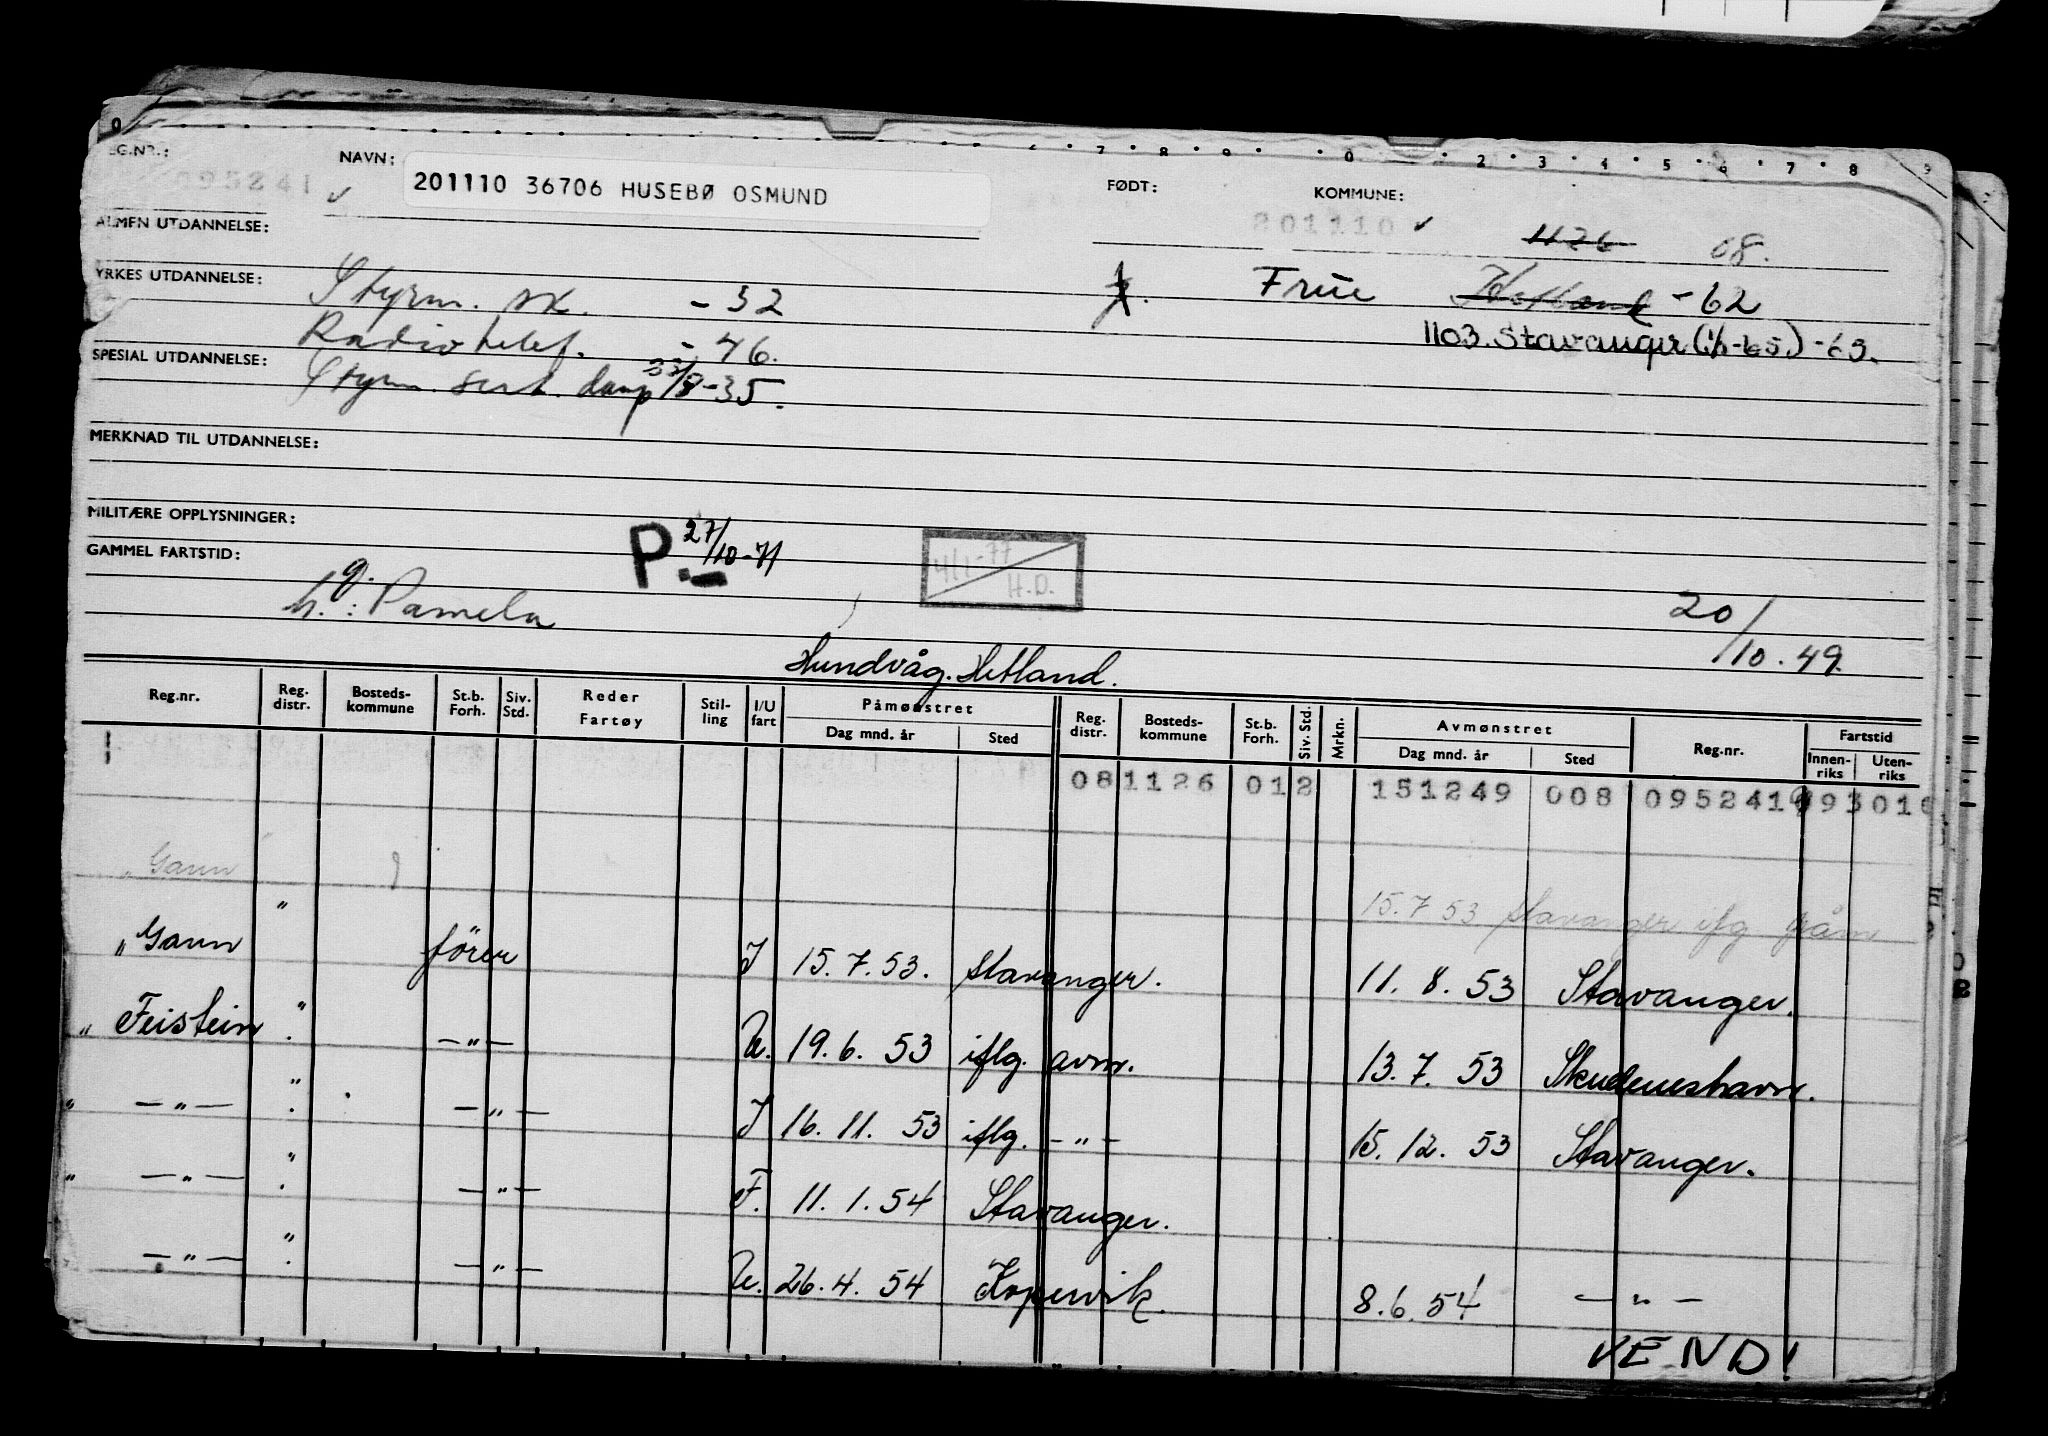 REG.NR.: 095241 NAVN: 201110 36706 HUSEBØ OSMUND FØDT: 201110 KOMMUNE: 1126 08.
ALMEN UTDANNELSE:
YRKES UTDANNELSE: Styrm. sk. - 32 Frue Hetland - 62
Radiotelef. - 46. 1103. Stavanger (1/1-65.) -63.
SPESIAL UTDANNELSE: Styrm. sert. damp - 35.
MERKNAD TIL UTDANNELSE:
MILITÆRE OPPLYSNINGER: P.- 27/10-71 4/1-77 H.D.
GAMMEL FARTSTID:
Pamela 20/10.49.
Hundvåg. Hetland.
Reg.nr. Reg. distr. Bosteds-kommune St.b. Forh. Siv. Std. Reder Fartøy Stil-ling I/U fart Påmønstret Dag mnd. år Sted Reg. distr. Bosteds-kommune St.b. Forh. Siv. Std. Mrkn. Avmønstret Dag mnd. år Sted Reg.nr. Fartstid Innen-riks Uten-riks
081126 012 151249 008 095241
" Gann 15.7 53 Stavanger iflg
" Gann " fører I 15.7.53. Stavanger. 11. 8. 53 Stavanger.
" Feistein " - " - U. 19. 6. 53 iflg. avm. 13. 7. 53 Skudeneshavn.
" - " - " - " - I 16. 11. 53 iflg. - " - 15. 12. 53 Stavanger.
" - " - " - " - F. 11. 1. 54 Stavanger.
- " - " - " - U. 26. 4. 54 Kopervik. 8. 6. 54 - " -
VEND!